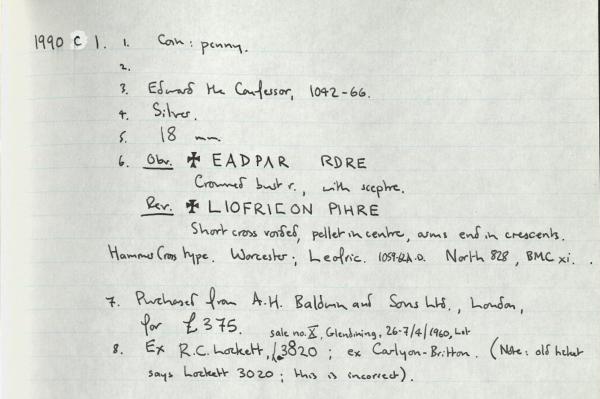 1990 C 1. 1. Coin: penny.
2.
3. Edward the Confessor, 1042-66.
4. Silver.
5. 18 mm
6. Obv. ✠ EADPAR RDRE
Crowned bust r., with sceptre.
Rev. ✠ LIOFRIC ON PIHRE
Short cross voided, pellet in centre, arms end in crescents.
Hammer Cross type. Worcester; Leofric. 1059-62 A.D. North 828, BMC xi.
7. Purchased from A.H. Baldwin and Sons Ltd., London,
for £375. sale no. X, Glendining, 26-7/4/1960, Lot
8. Ex R.C. Lockett, 3820; ex Carlyon-Britton. (Note: old ticket
says Lockett 3020; this is incorrect).